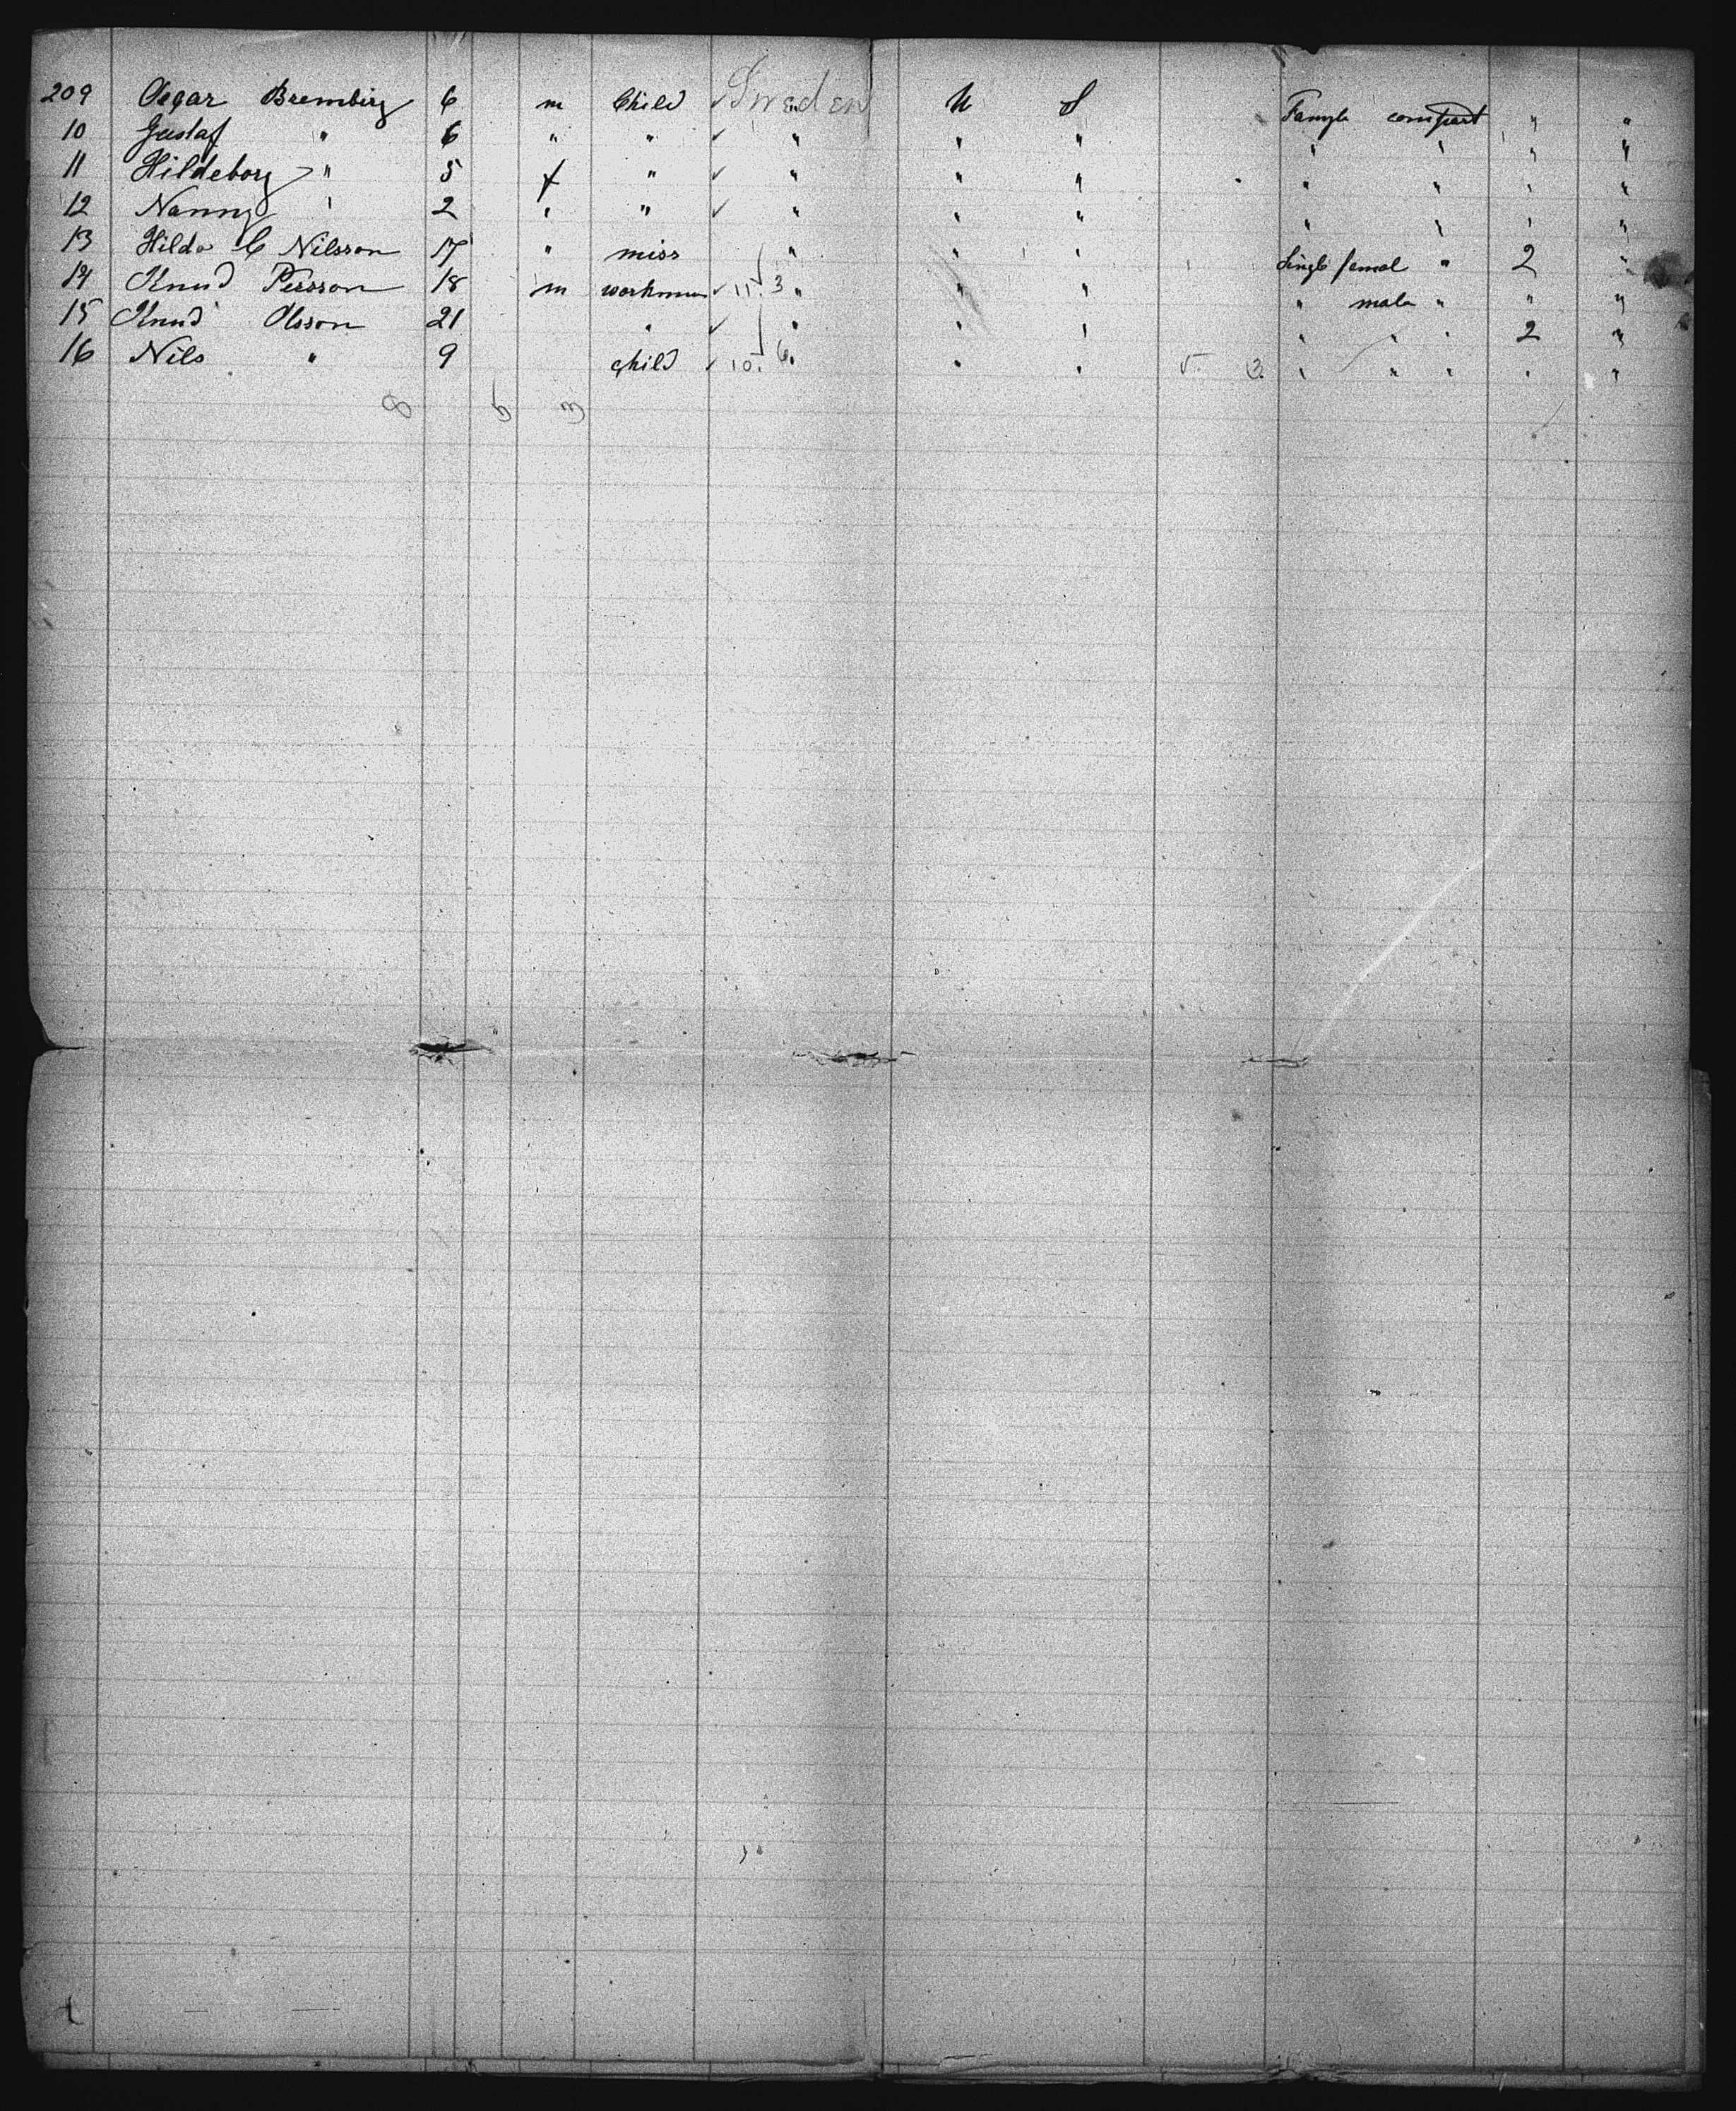 209 Oscar Bremberg 6 m Child Sweden U S Famyle compart " "
10 Gustaf " 6 " " " " " " " " "
11 Hildeborg " 5 f " " " " " " " "
12 Nanny " 2 " " " " " " " " "
13 Hilda C Nilsson 17 " miss " " " Single femal " 2 "
14 Knud Persson 18 m workman 11. 3 " " " " male " " "
15 Knud Olsson 21 " " " " " " " 2 "
16 Nils " 9 Child 10. 6. " " 5. 3. " " " " "
8 5 3